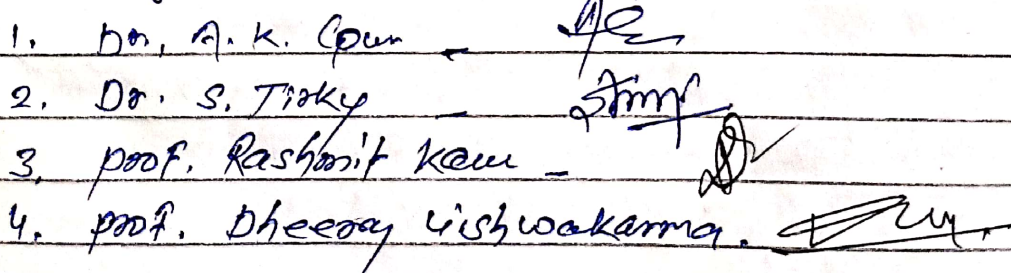 1. Dr. A. K. Gour -
2. Dr. S. Tirky -
3. prof. Rashmit Kaur -
4. prof. Dheeraj Vishwakarma.